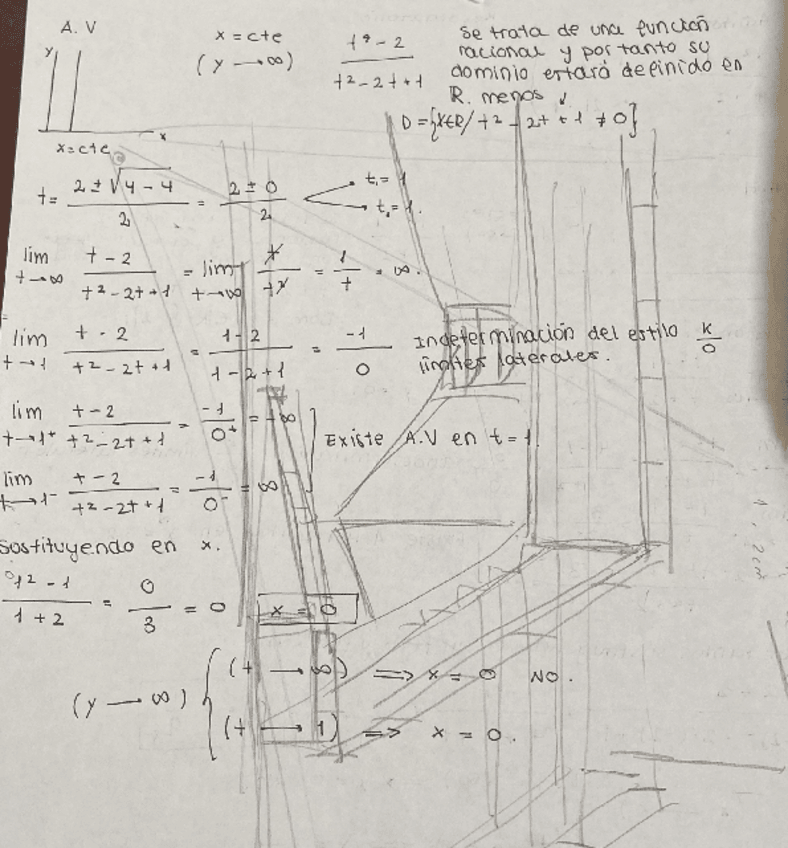 A. V
x = cte
(y → ∞)
y
x
x = cte
t² - 2 / t² - 2t + 1
Se trata de una función
racional y por tanto su
dominio estará definido en
R. menos
D = {x∈R / t² - 2t + 1 ≠ 0}
t = (2 ± √(4 - 4)) / 2 = (2 ± 0) / 2 t₁ = 1 t₂ = 1.
lim t→∞ (t - 2) / (t² - 2t + 1) = lim t→∞ t / t² = 1 / t = ∞.
lim t→1 (t - 2) / (t² - 2t + 1) = (1 - 2) / (1 - 2 + 1) = -1 / 0 Indeterminación del estilo K / 0
límites laterales.
lim t→1⁺ (t - 2) / (t² - 2t + 1) = -1 / 0⁺ = +∞
Existe A.V en t = 1
lim t→1⁻ (t - 2) / (t² - 2t + 1) = -1 / 0⁻ = ∞
Sostituyendo en x.
(1² - 1) / (1 + 2) = 0 / 3 = 0 x = 0
(y → ∞) { (t → ∞) ⇒ x = 0 NO.
(t → 1) ⇒ x = 0.